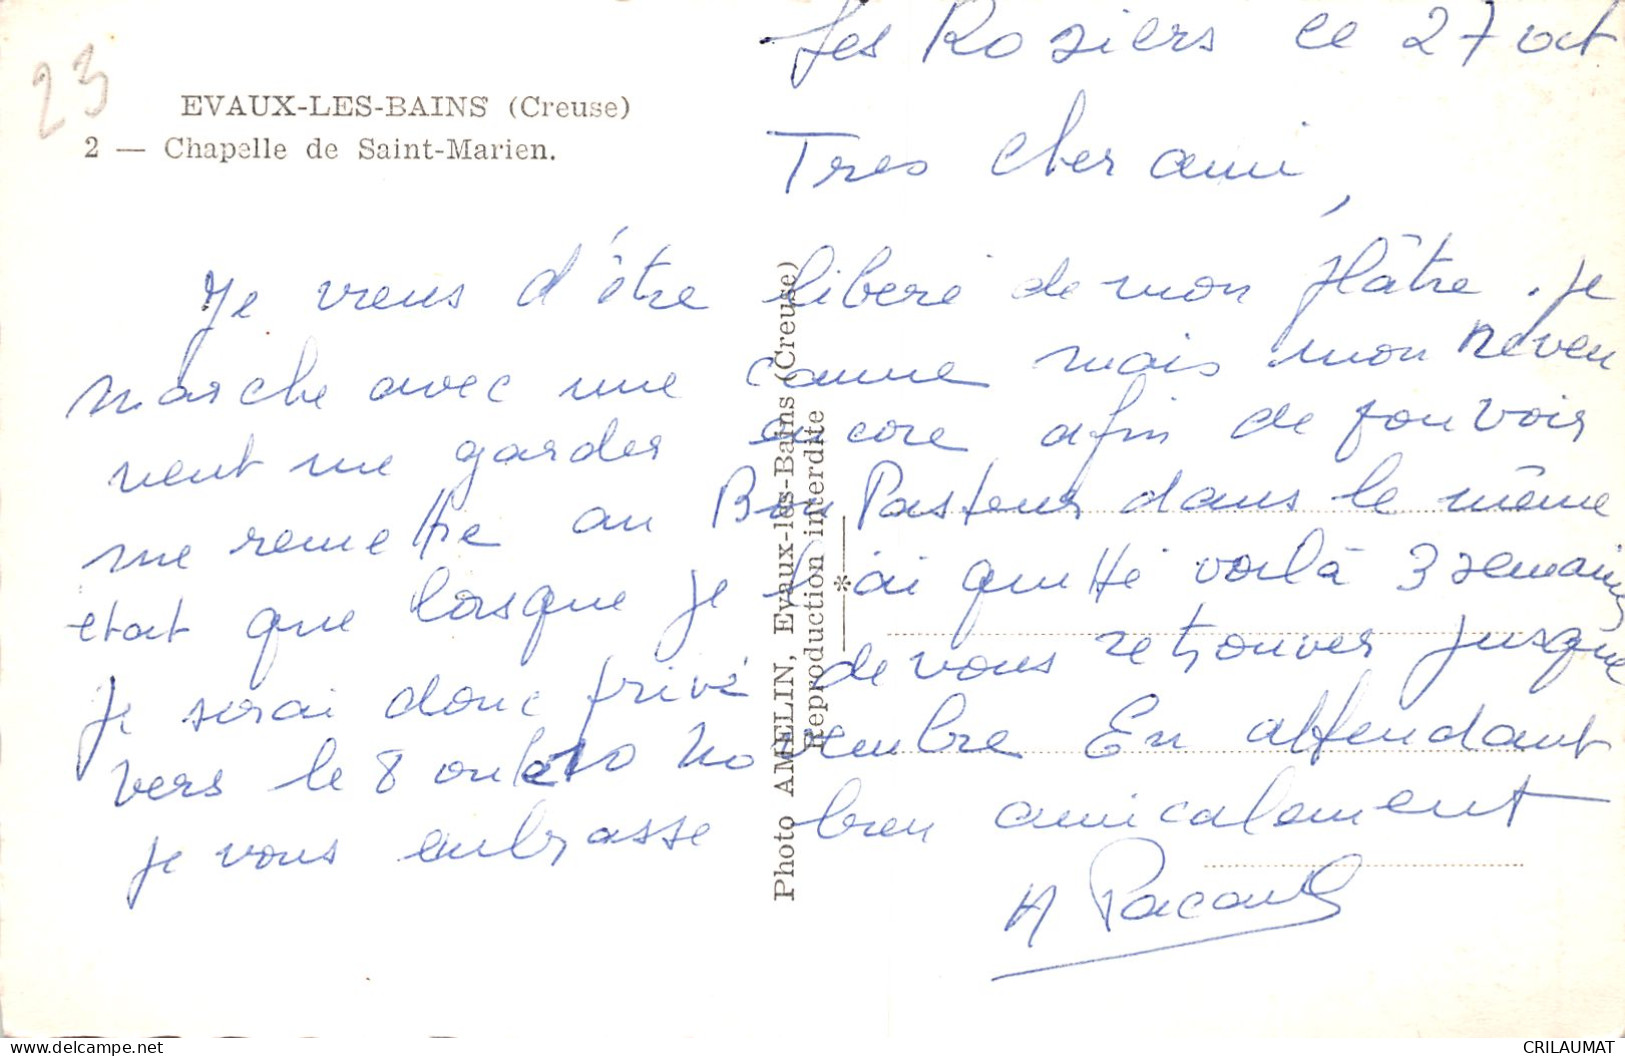 23
EVAUX-LES-BAINS (Creuse)
2 — Chapelle de Saint-Marien.
Les Roziers ce 27 oct
Tres cher ami,
Je viens d'être libere de mon plâtre. Je
marche avec une canne mais mon neveu
veut me garder encore afin de pouvoir
me remettre au Bon Pasteur dans le même
etat que lorsque je l'ai quitté voilà 3 semaines
Je serai donc privé de vous retrouver jusque
vers le 8 ou le 10 Novembre En attendant
je vous embrasse bien amicalement
A Pacaud
Photo AMELIN, Evaux-les-Bains (Creuse)
Reproduction interdite
CRILAUMAT
www.delcampe.net